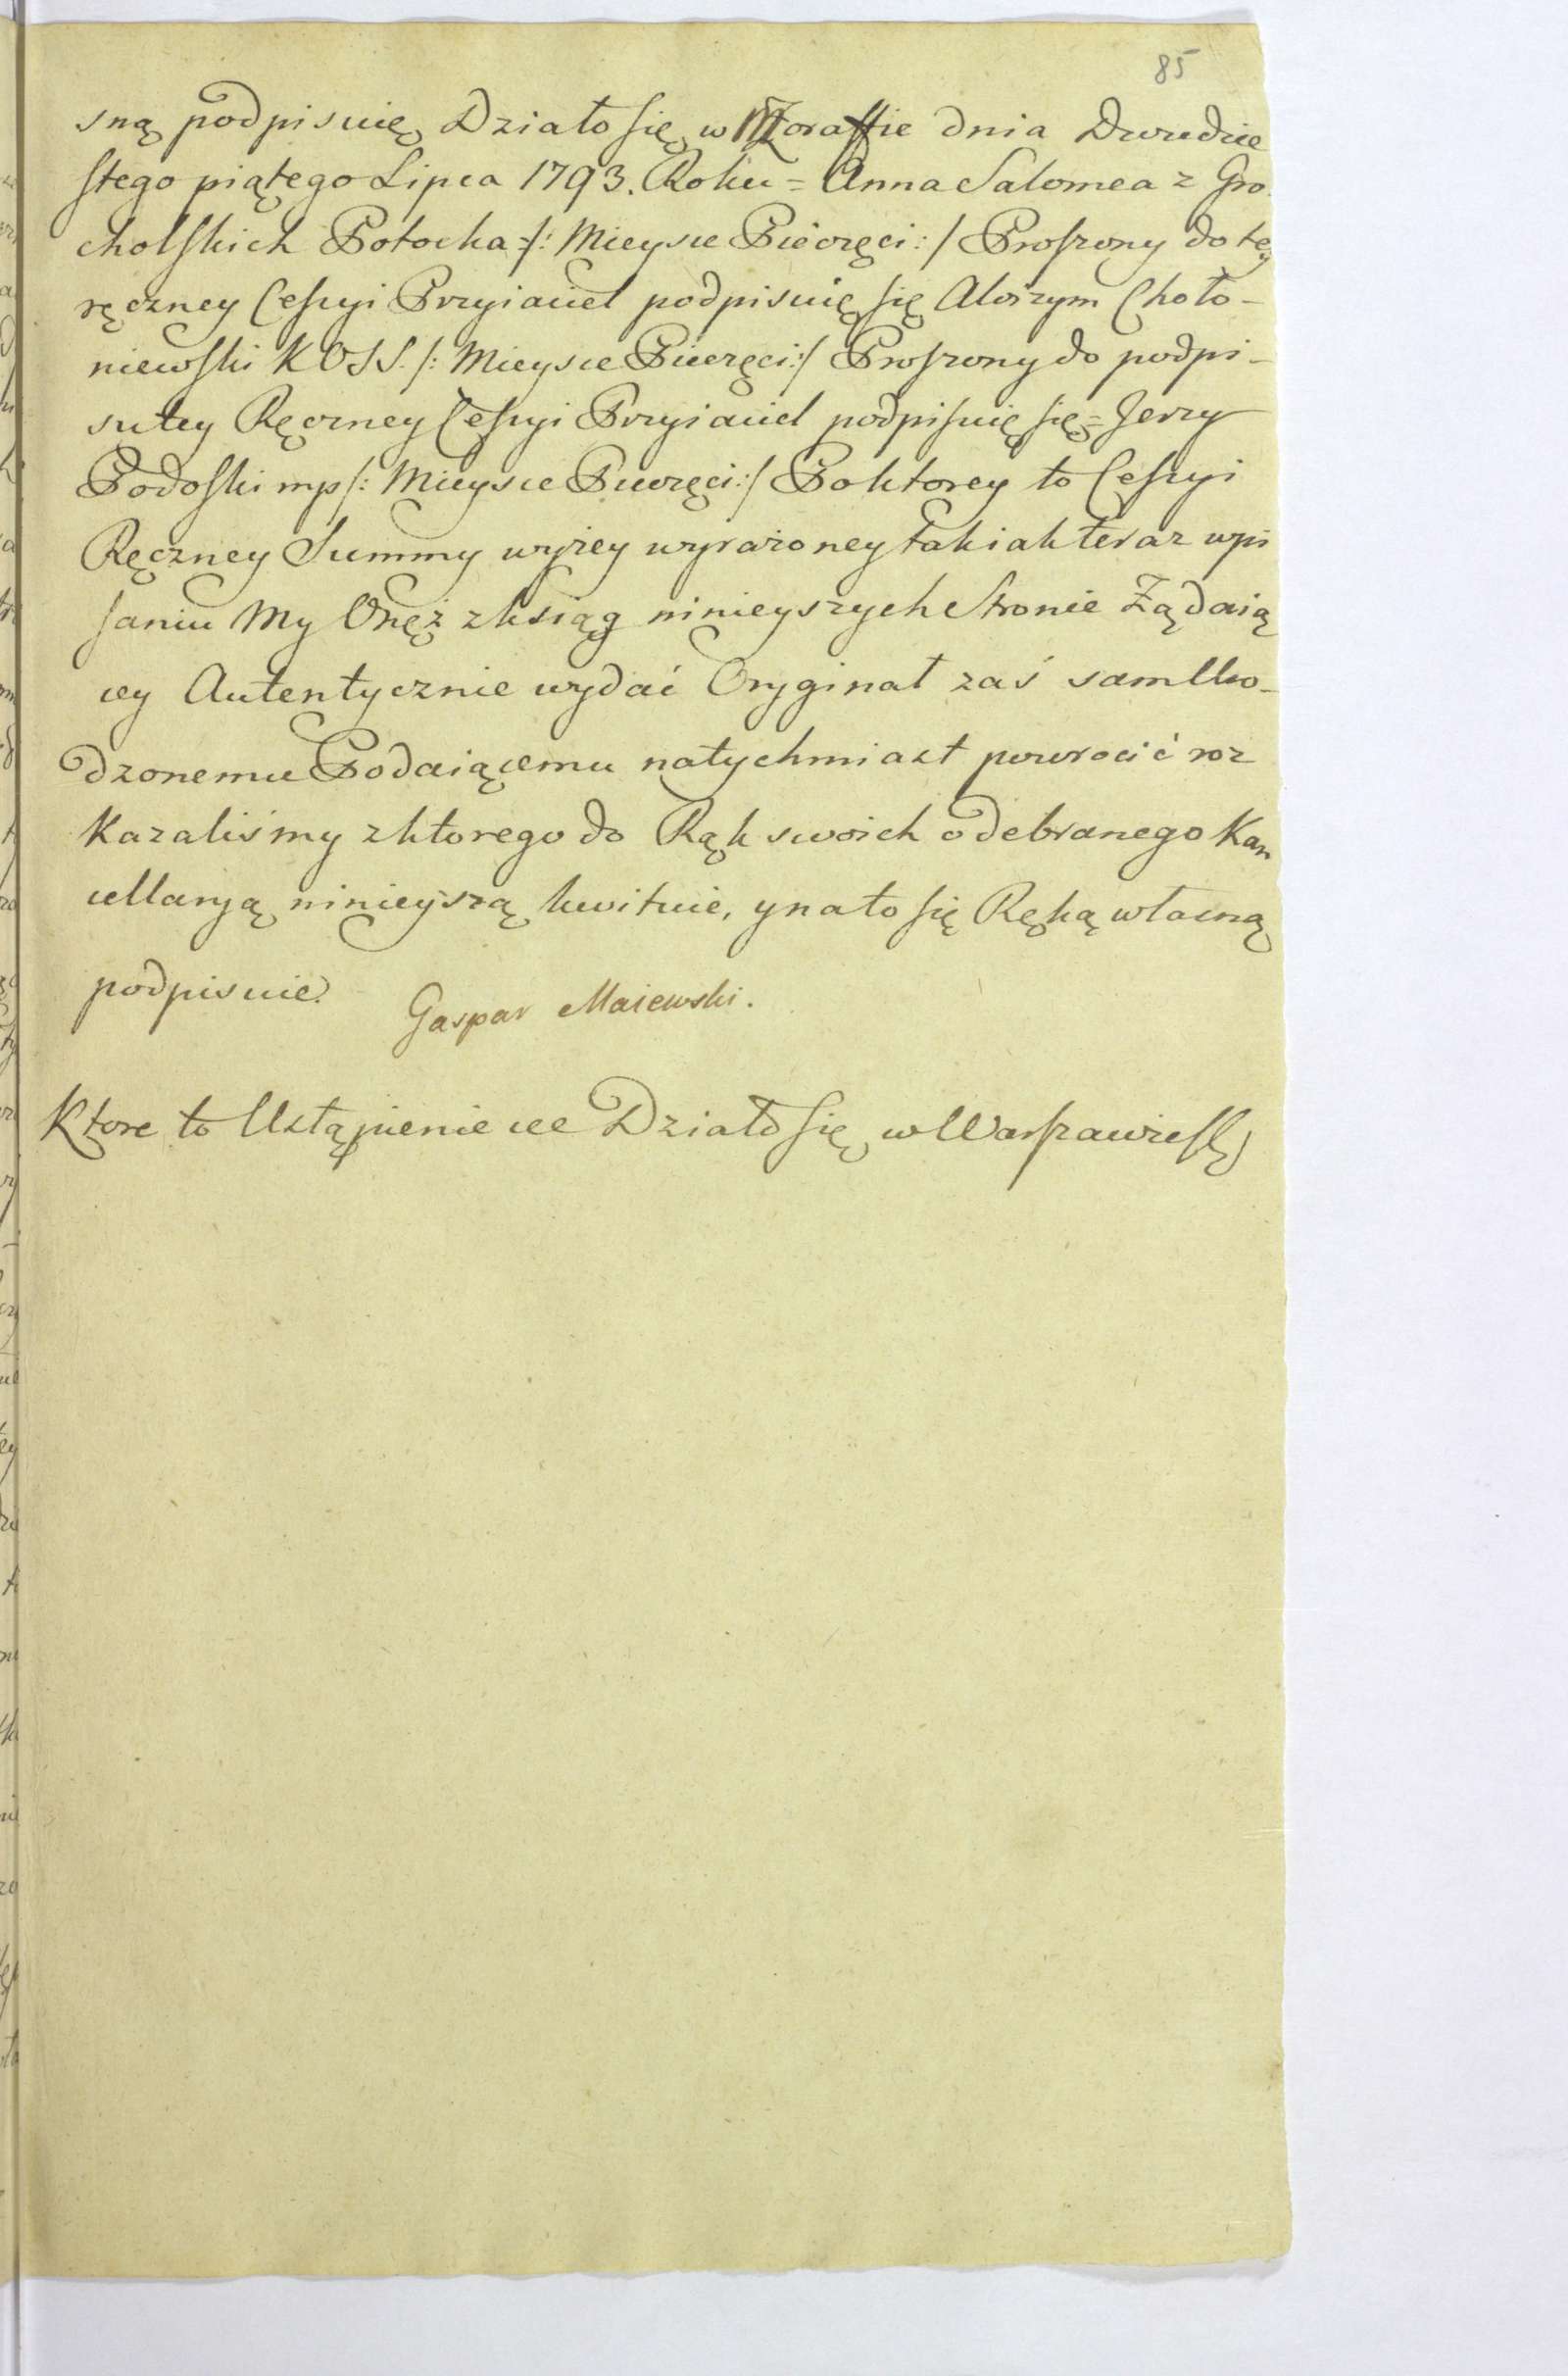 85
sną podpisuię Działo się w Morafie dnia Dwudzie
stego piątego Lipca 1793. Roku = Anna Salomea z Gro
cholskich Potocka =/: Mieysce Pieczęci :/ Proszony do tey
ręczney Cessyi Przyiaciel podpisuię się Aloizym Choło-
niewski KOSS. /: Mieysce Pieczęci :/ Proszony do podpi-
su tey Ręczney Cessyi Przyiaciel podpisuię się = Jerzy
Podoski mp /: Mieysce Pieczęci :/ Po ktorey to Cessyi
Ręczney Summy wyżey wyrażoney tak iak teraz wpi
saniu My Onęż z ksiąg ninieyszych Stronie Żądaią
cey Autentycznie wydać Oryginał zaś sam Uro-
dzonemu Podaiącemu natychmiast powrocić roz
kazaliśmy z ktorego do Rąk swoich odebranego Kan
cellaryą ninieyszą kwituie, y na to się Ręką własną
podpisuie.
Gaspar Maiewski.
Ktore to Ustąpienie ece Działo się w Warszawie